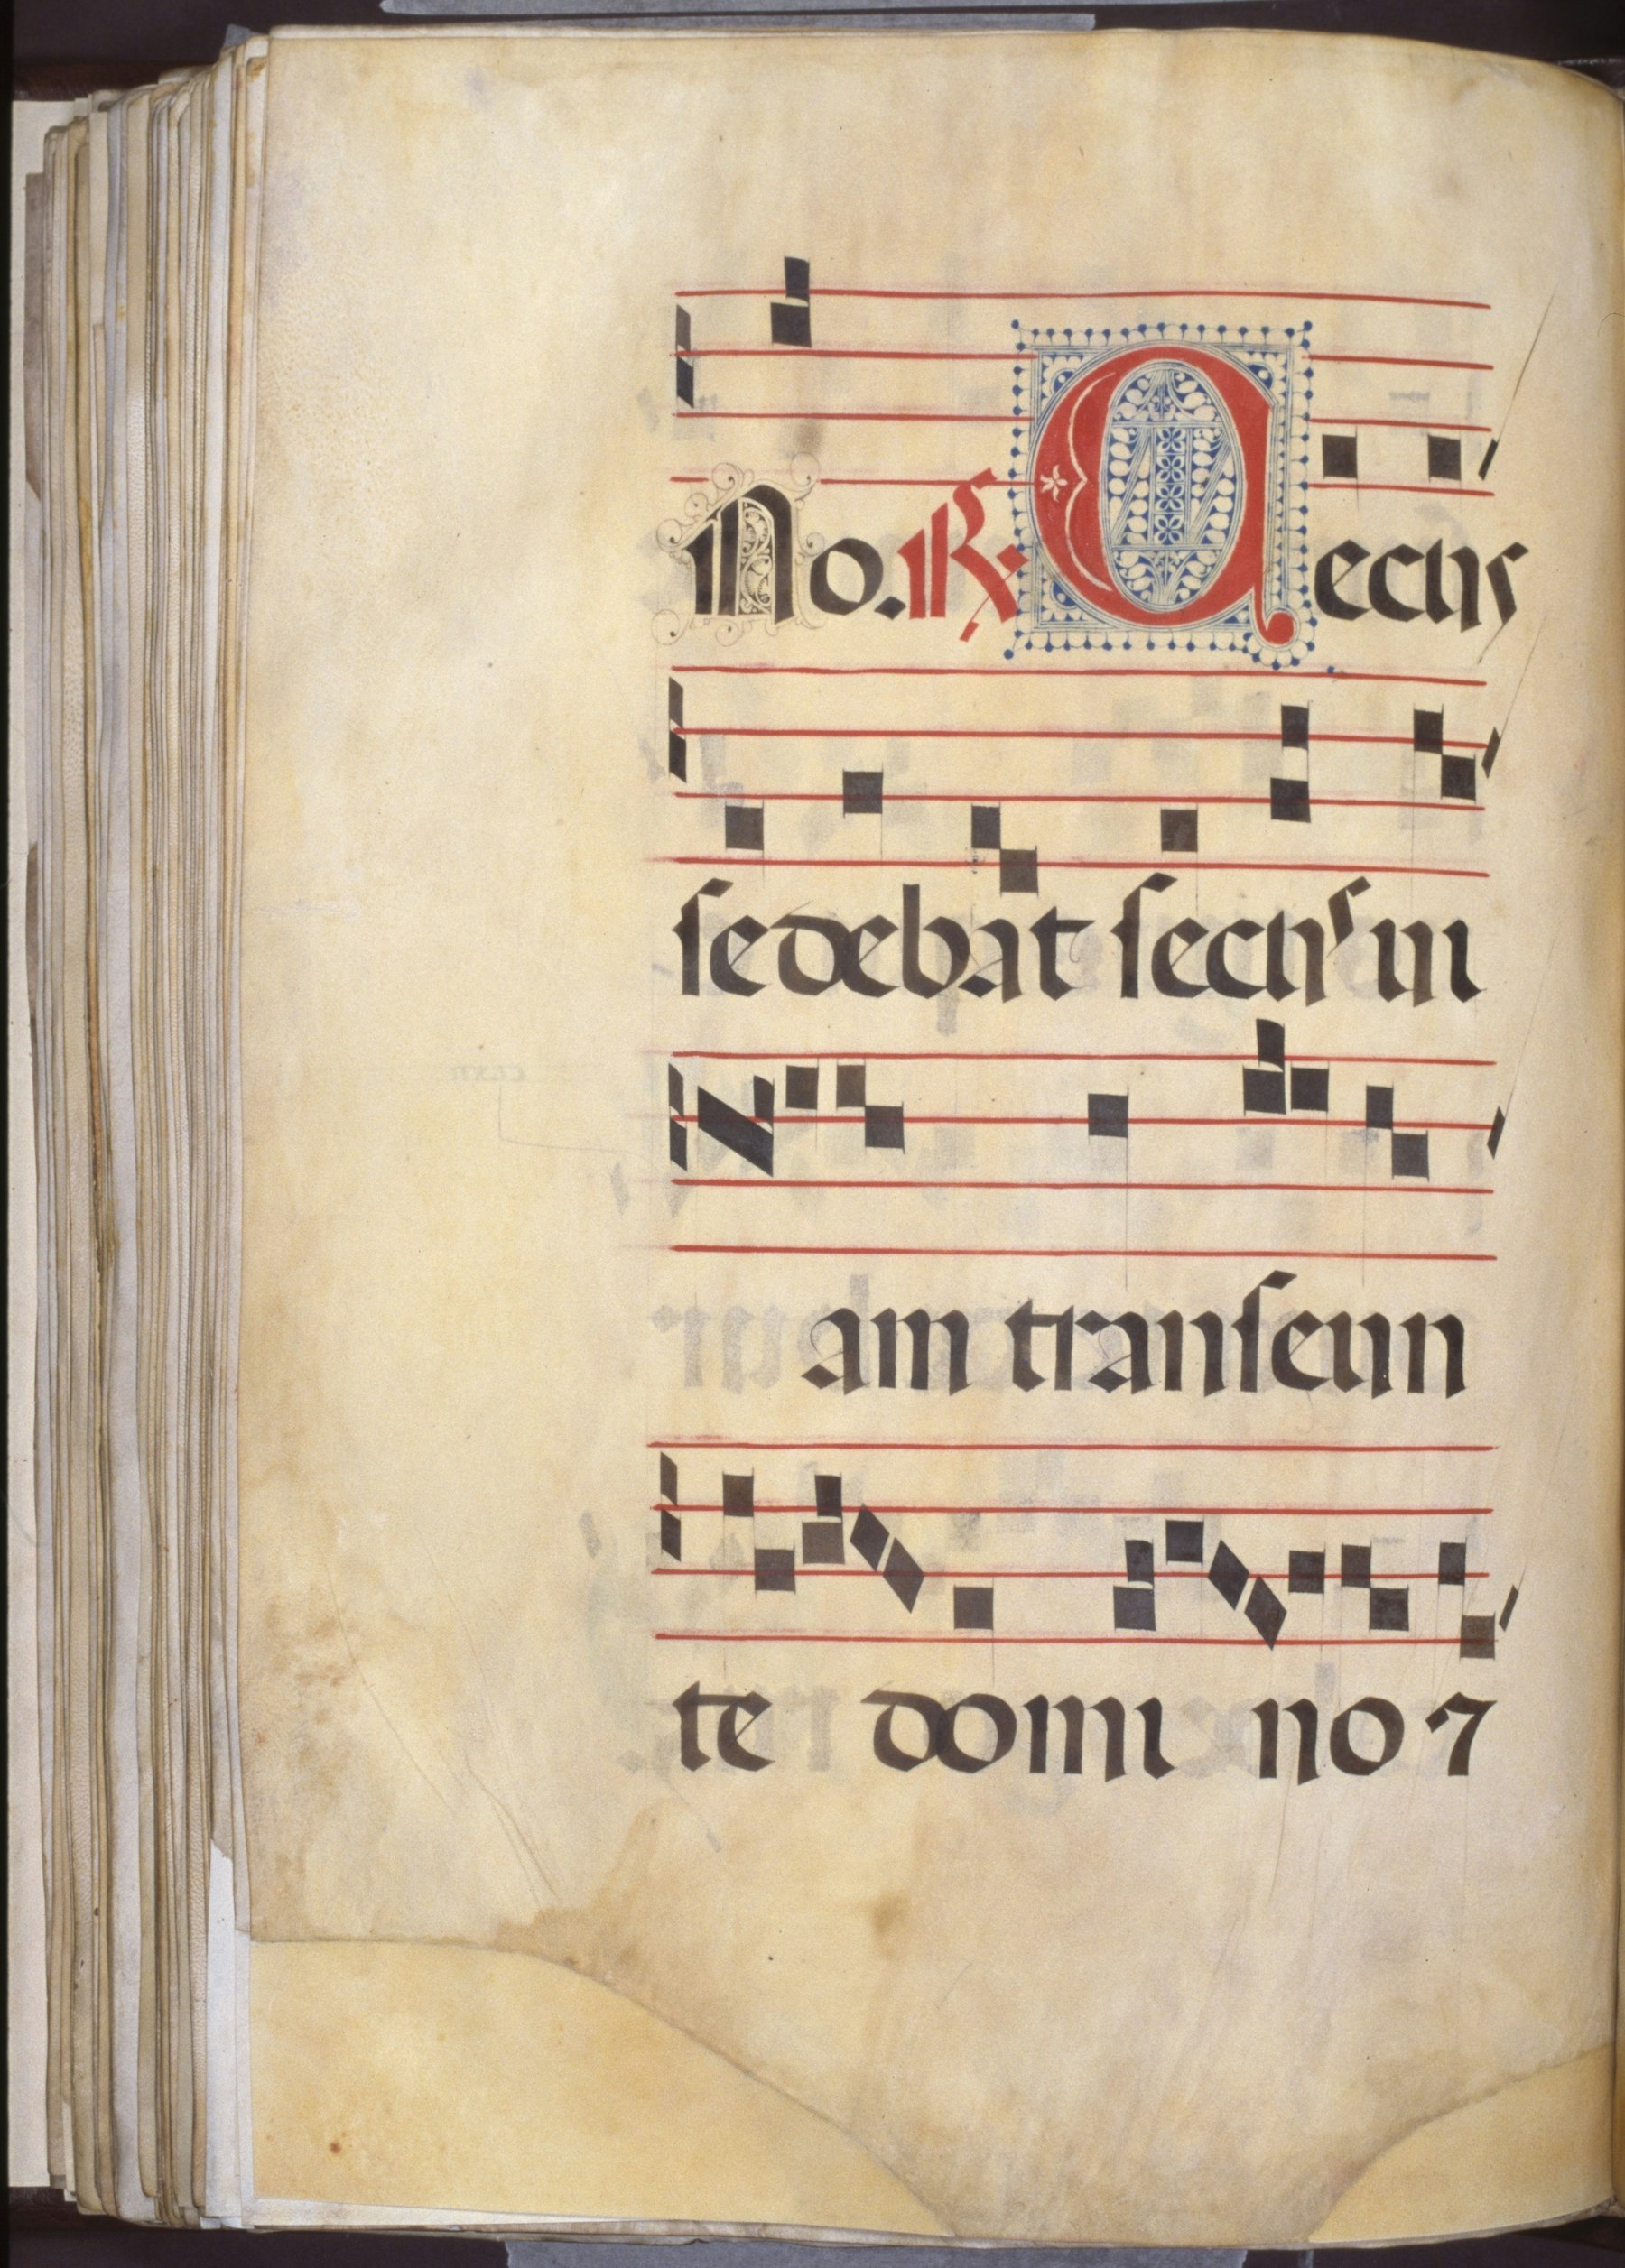 No. ℟. Cecus
sedebat secus ui
am transeun
te domi no ⁊